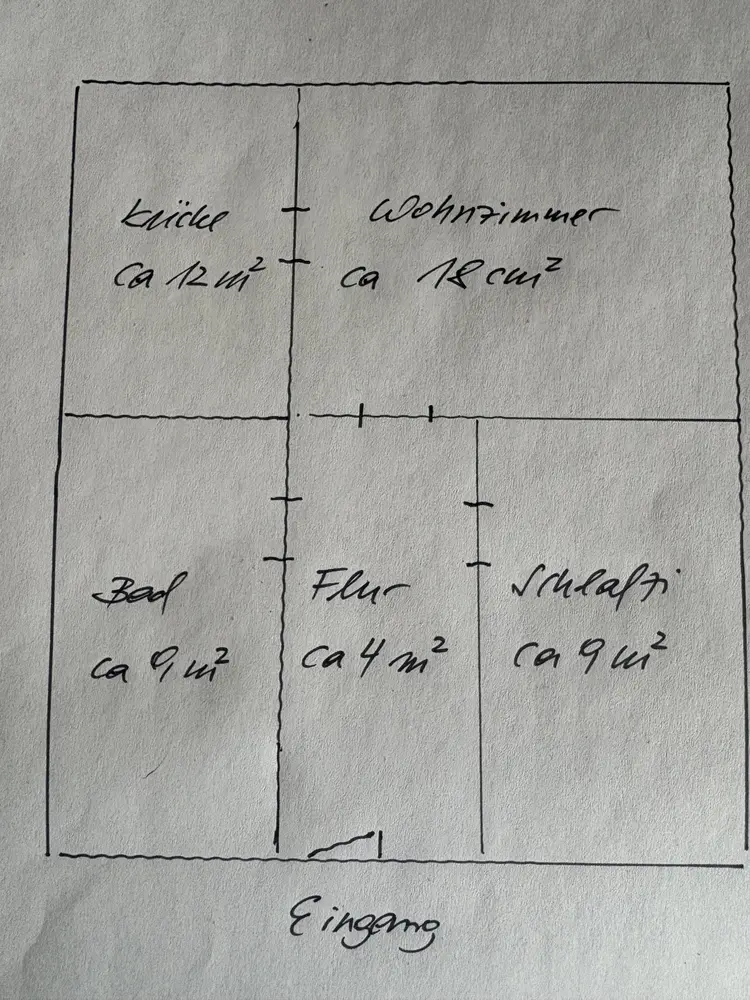 Küche
ca 12 m²
Wohnzimmer
ca 18 cm²
Bad
ca 9 m²
Flur
ca 4 m²
Schlafzi
ca 9 m²
Eingang